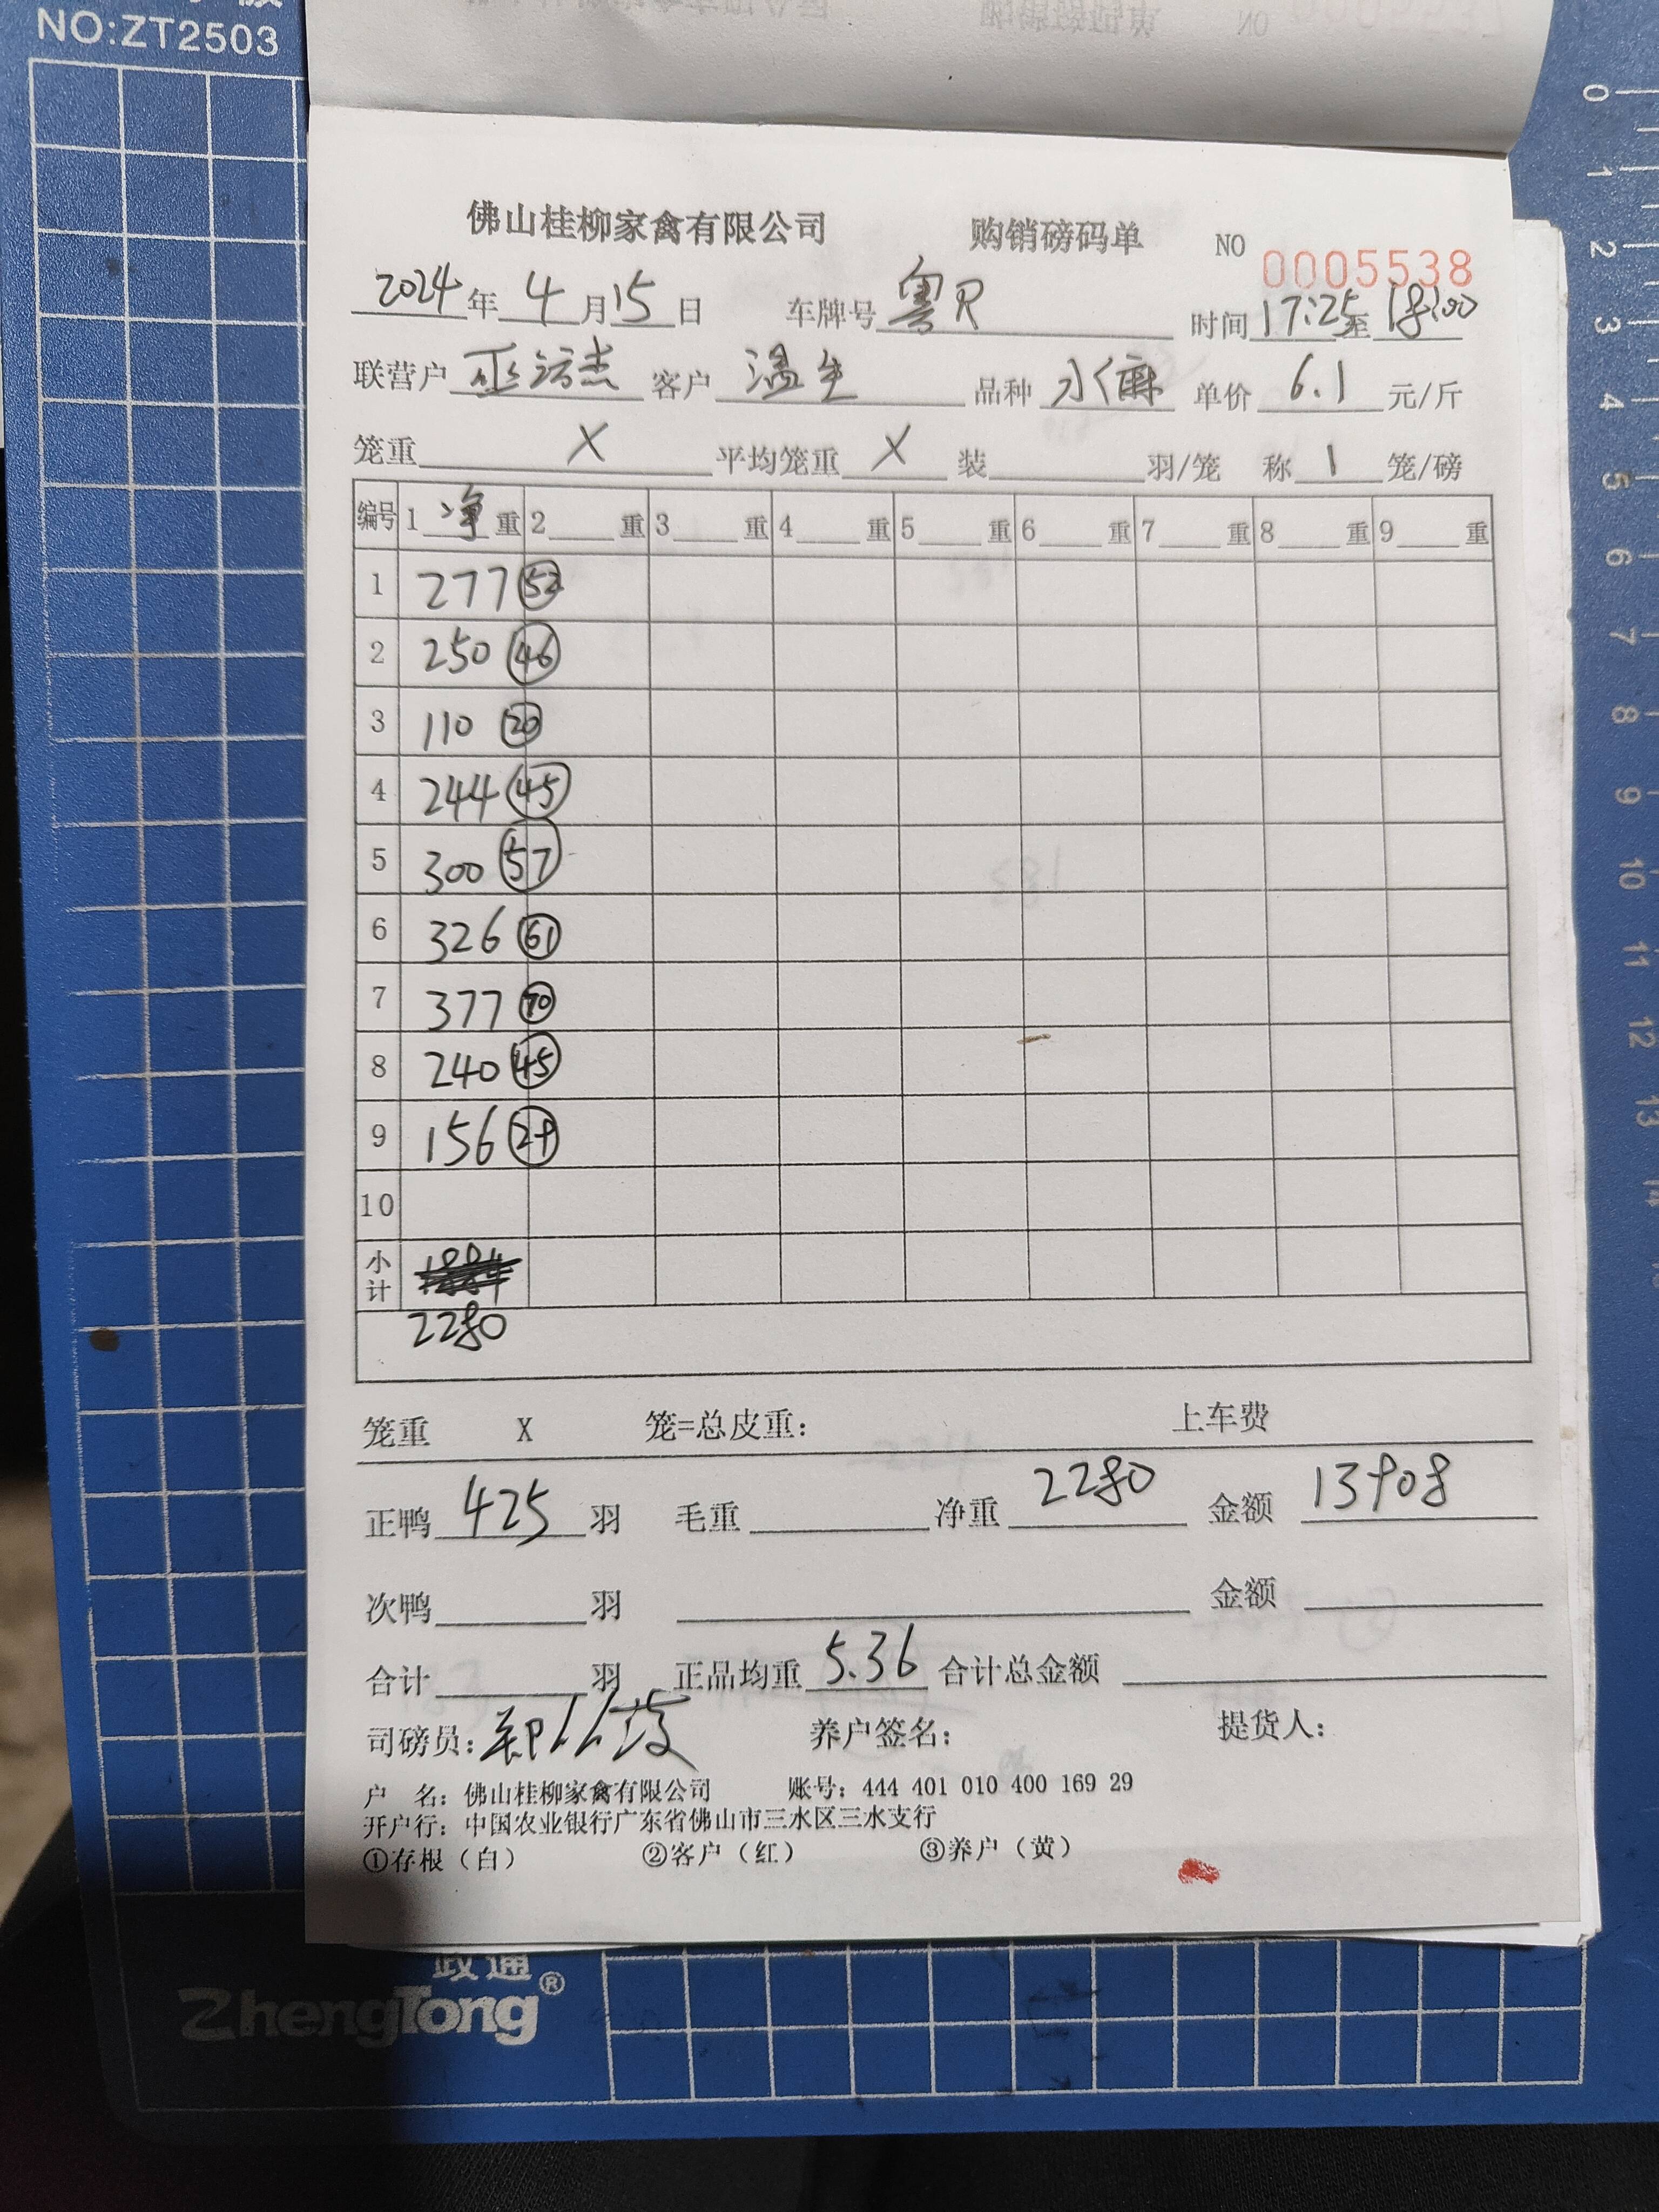 NO:ZT2503
佛山桂柳家禽有限公司 购销磅码单 NO 0005538
2024年4月15日 车牌号 粤R 时间17:25至18:00
联营户 客户 温生 品种 水麻 单价 6.1 元/斤
笼重 X 平均笼重 X 装 羽/笼 称 1 笼/磅
编号 1 净 重 2 重 3 重 4 重 5 重 6 重 7 重 8 重 9 重
1 277 52
2 250 46
3 110 20
4 244 45
5 300 57
6 326 61
7 377 70
8 240 45
9 156 29
10
小计
2280
笼重 X 笼=总皮重: 上车费
正鸭 425 羽 毛重 净重 2280 金额 13908
次鸭 羽 金额
合计 羽 正品均重 5.36 合计总金额
司磅员: 养户签名: 提货人:
户 名: 佛山桂柳家禽有限公司 账号: 444 401 010 400 169 29
开户行: 中国农业银行广东省佛山市三水区三水支行
①存根(白) ②客户(红) ③养户(黄)
政通
ZhengTong®
0
1
2
3
4
5
6
7
8
9
10
11
12
13
14